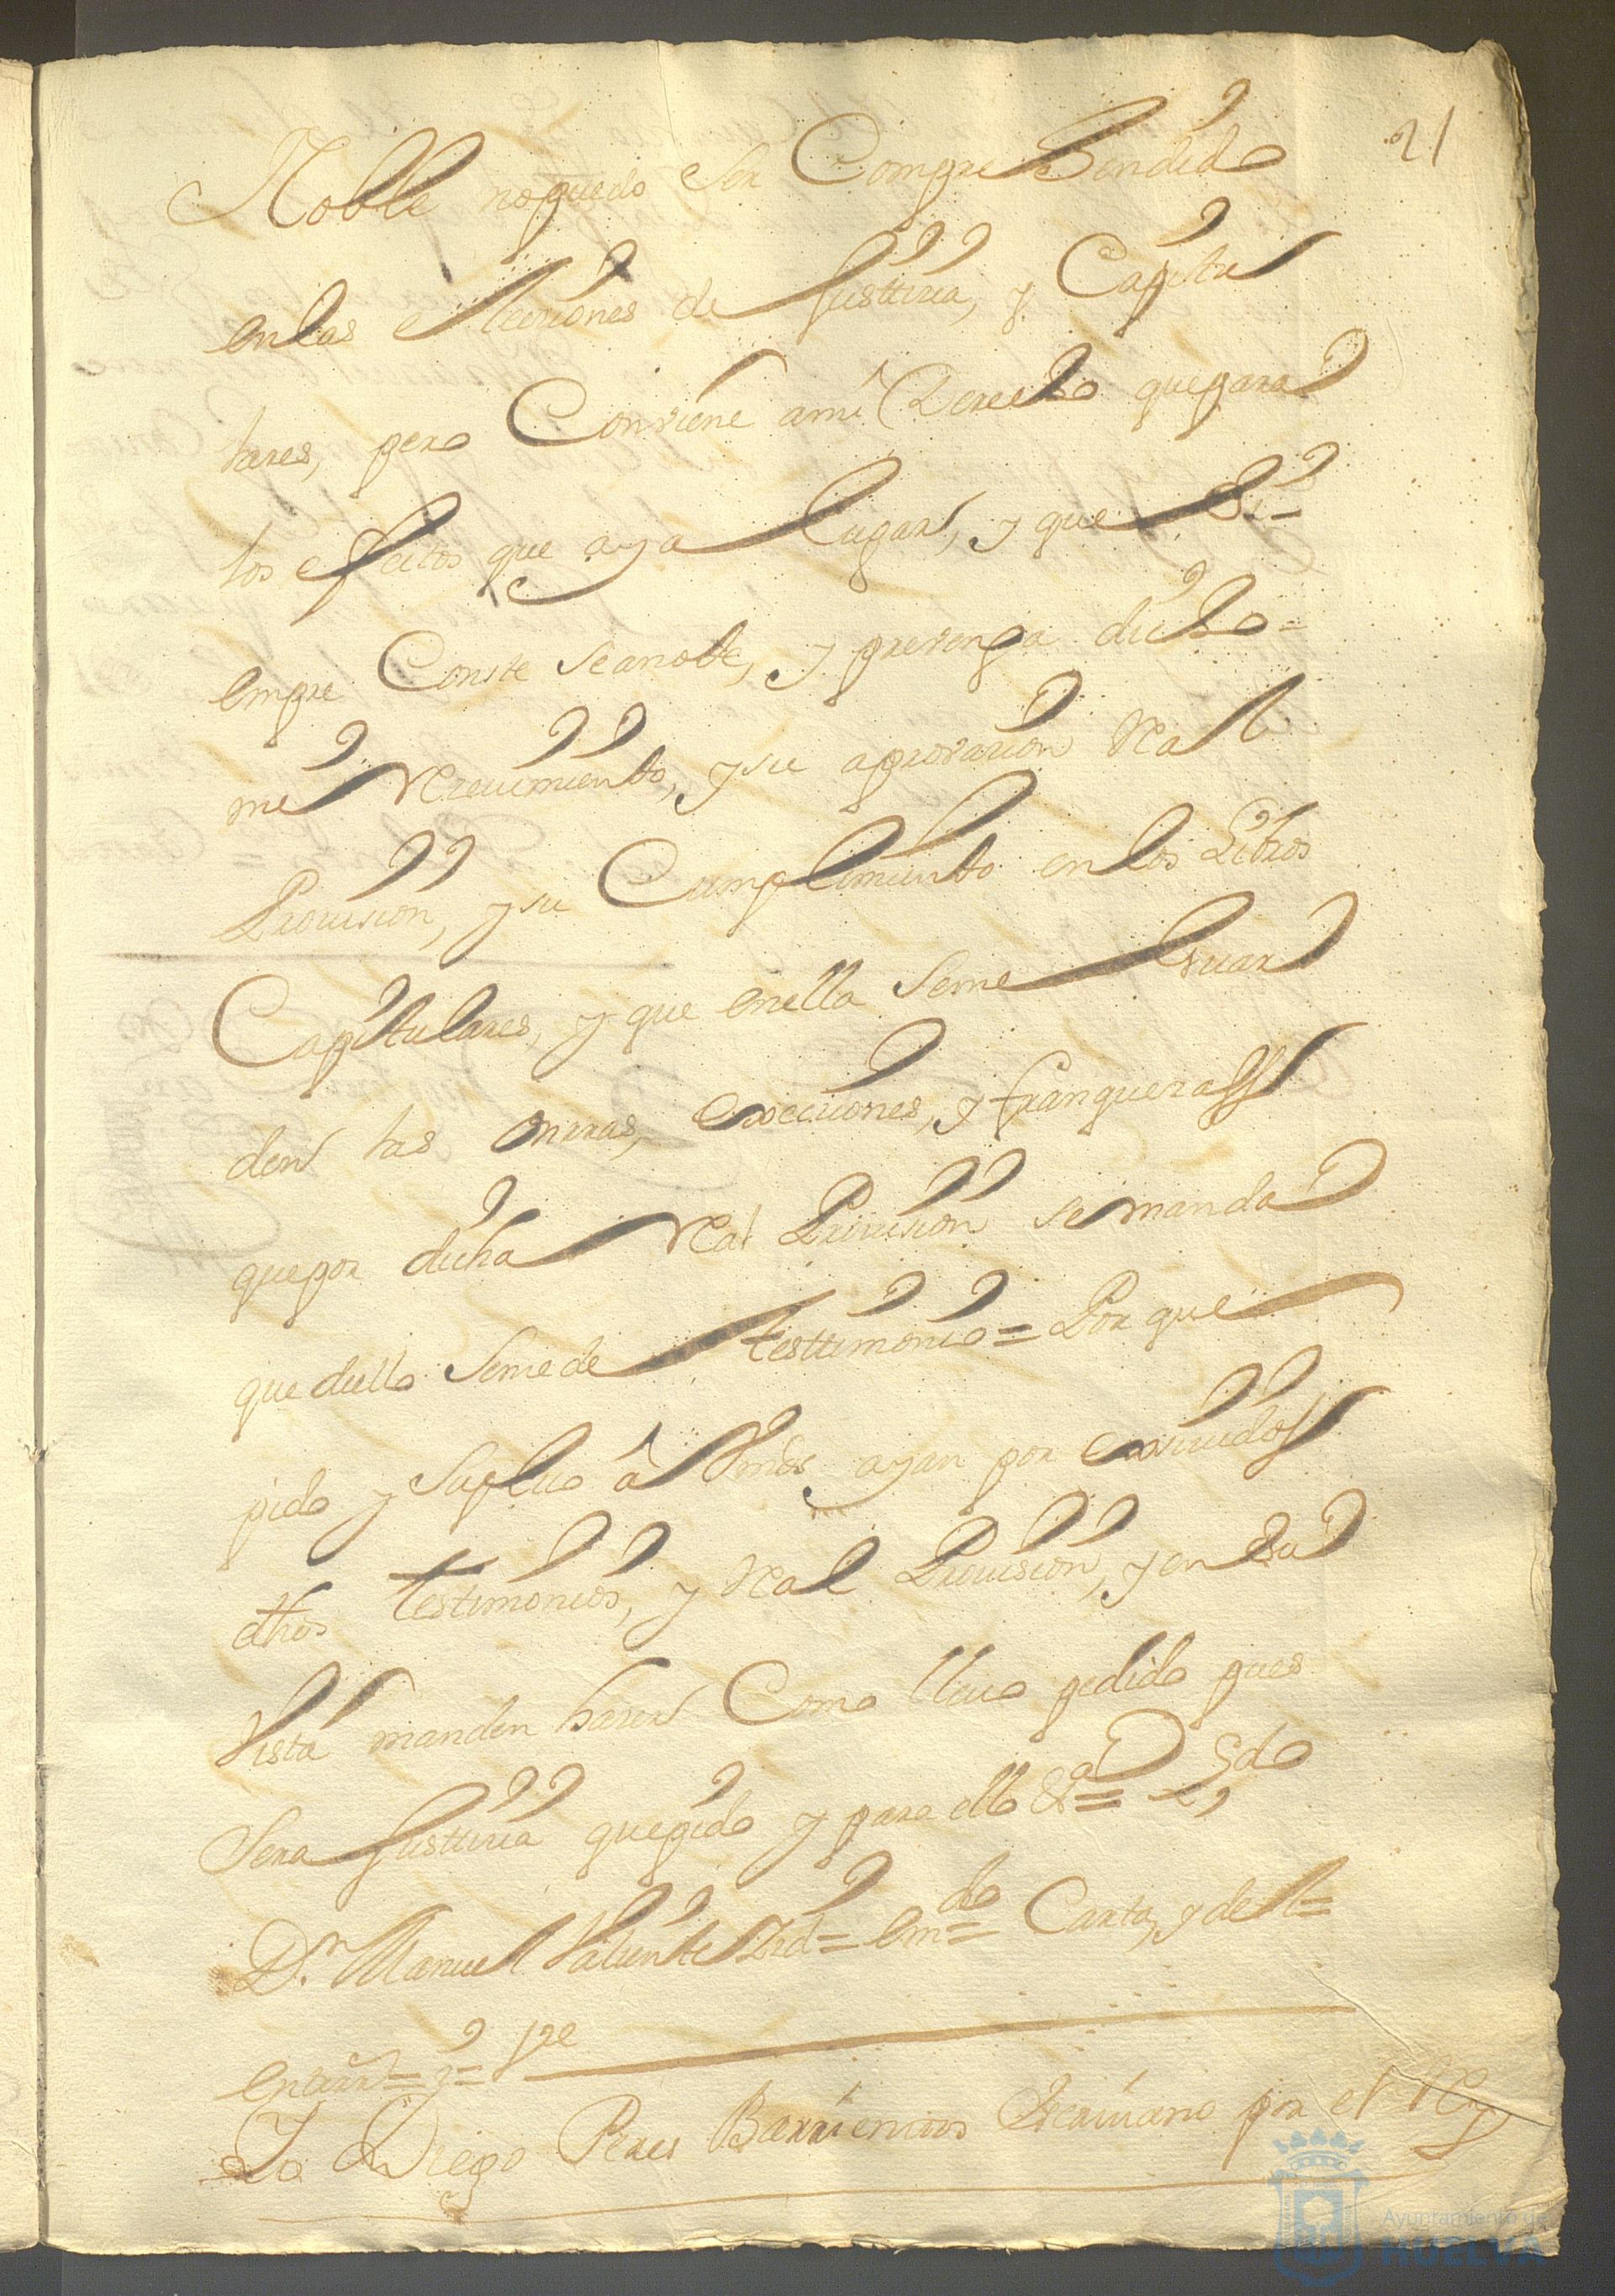 21
Noble no puedo ser Comprehendido
en las elecciones de Justticia, y Capitu
lares, pero Conviene ami Derecho que para
los efectos que aya lugar, y que Si=
empre Conste Se anote, y prevenga dicho=
mi Recevimiento, y su aprovacion Real
Provision, y su Cumplimiento en los Libros
Capitulares, y que en ella Seme Guar
den las onrras, Execciones, y franquezass
que por dicha Real Provision se manda
que dello Seme de testtimonio= Por que
pido y Suplico â Vmds ayan por Exividoss
dhos testimonios, y Real Provision, y en su
Vista manden hacer Como llevo pedido pues
Sera Justticia que pido y para ello &a=
Dn Manuel Valiente = emdo= Carta, y del=
Yo Diego Peres Barrientos Escrivano por el Rey
Ayuntamiento de
HUELVA